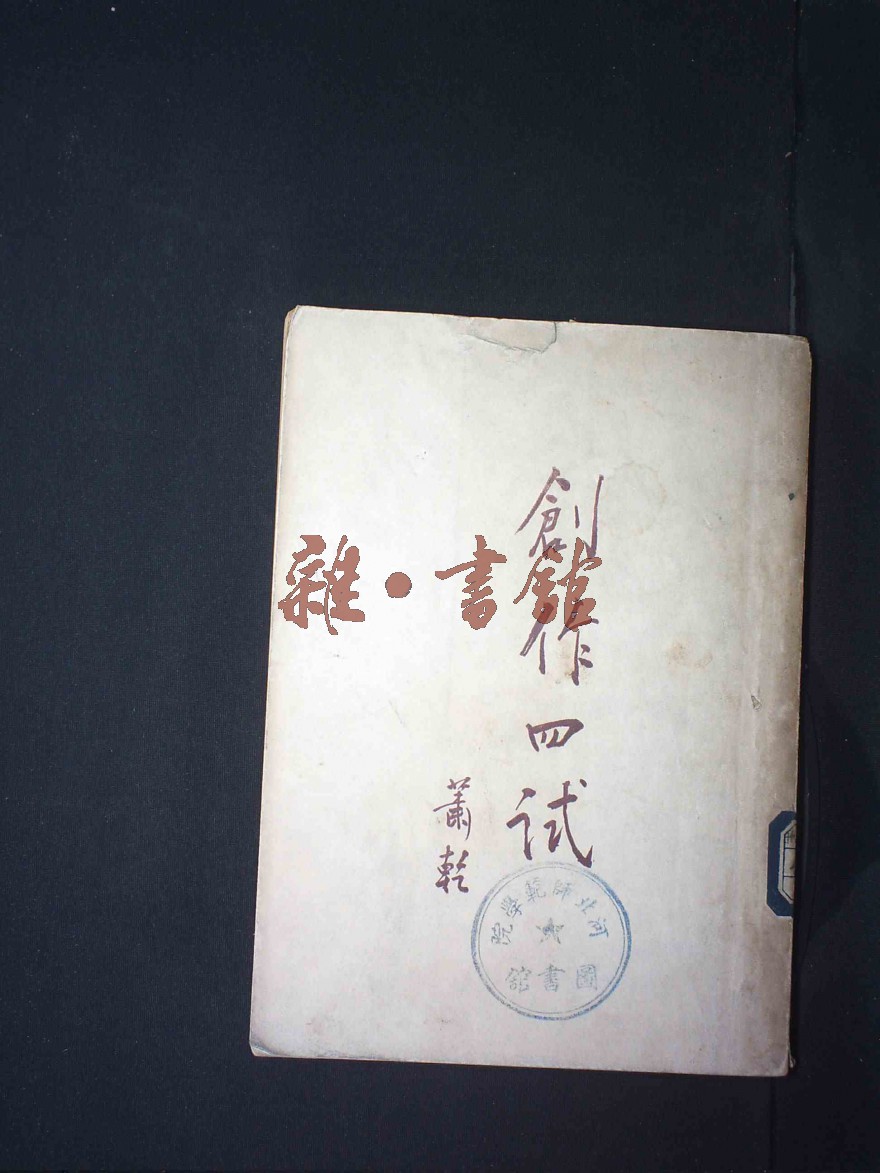 創作四試
蕭乾
雜•書館
河北師範學院
圖書館